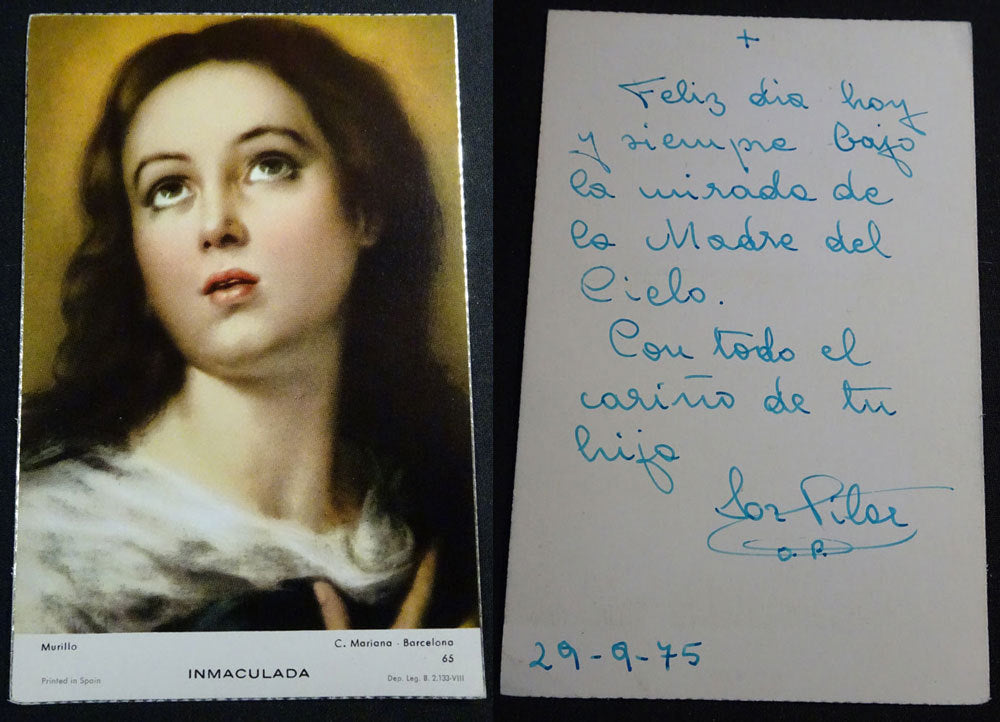 Murillo
C. Mariana - Barcelona
65
INMACULADA
Printed in Spain
Dep. Leg. B. 2.133-VIII
+
Feliz dia hoy
y siempre bajo
la mirada de
la Madre del
Cielo.
Con todo el
cariño de tu
hija
Sor Pilar
O. P.
29-9-75